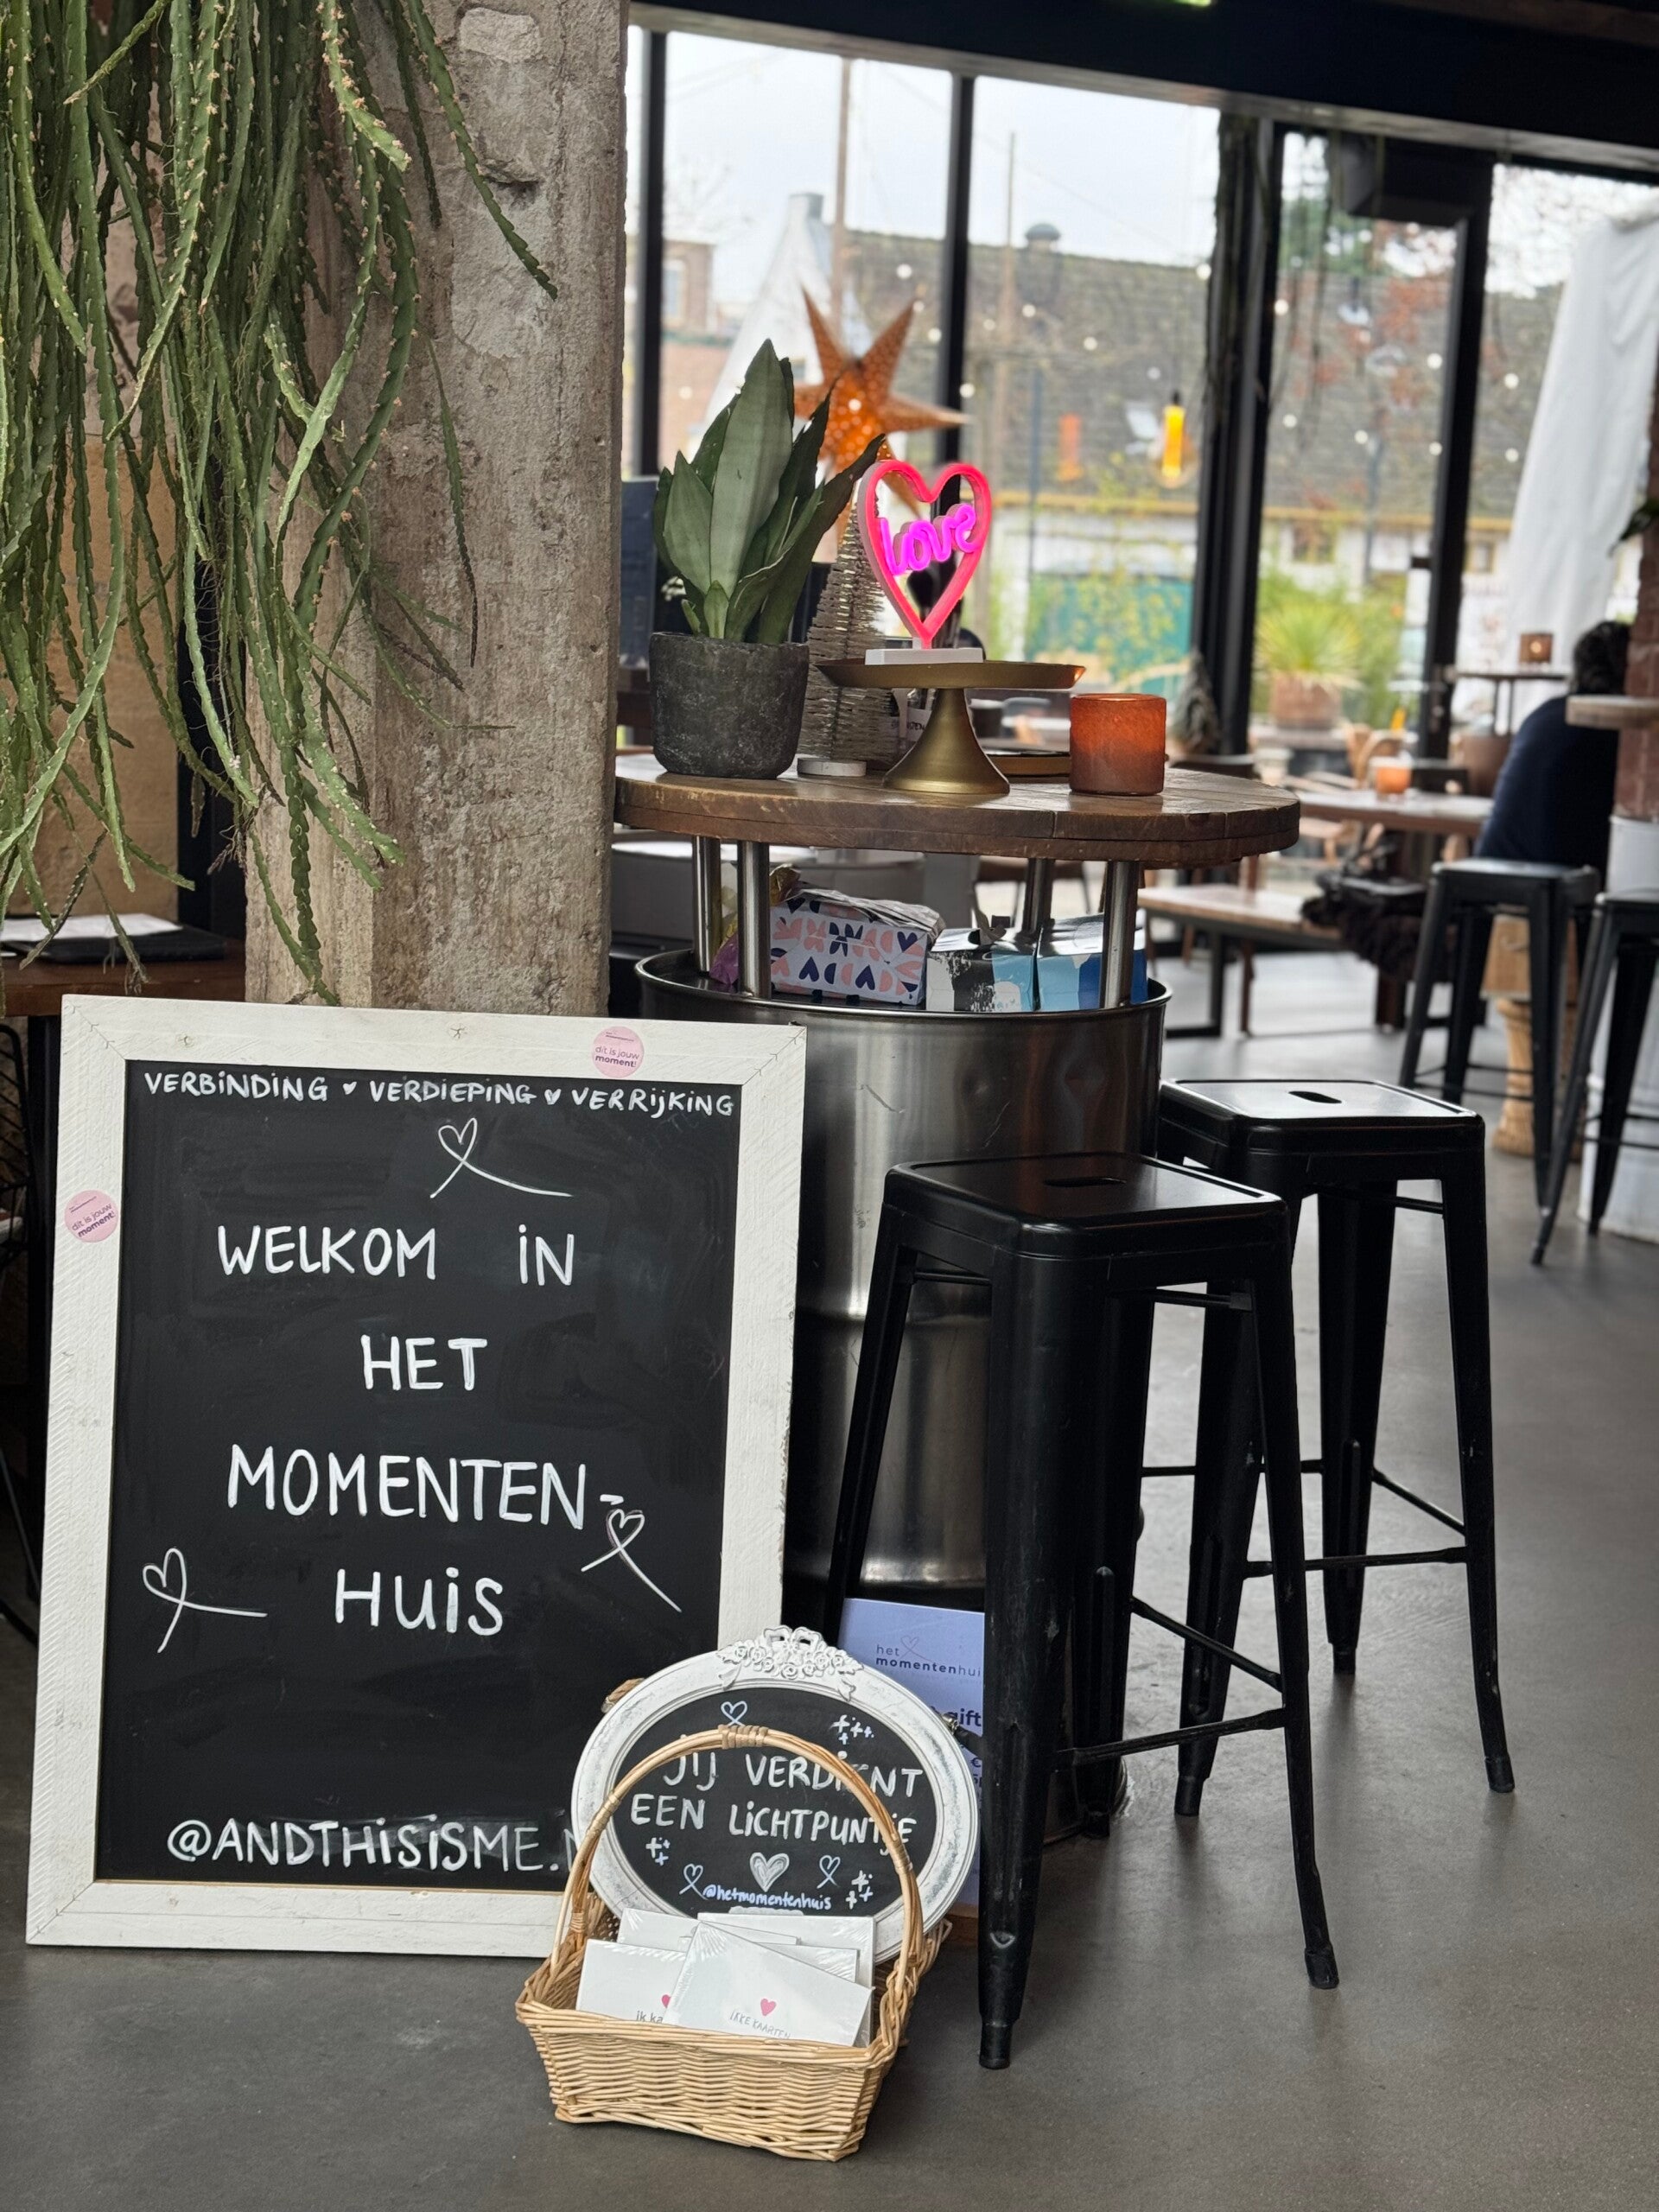 love
dit is jouw
moment!
VERBINDING ♥ VERDIEPING ♥ VERRIJKING
dit is jouw
moment!
WELKOM IN
HET
MOMENTEN-
HUIS
@ANDTHISISME.
het
momentenhui
gift
JIJ VERDIENT
EEN LICHTPUNTJE
@hetmomentenhuis
ik ka
IKKE KAARTEN